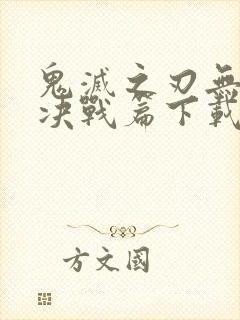 鬼滅之刃無
決戰篇下載
方文國